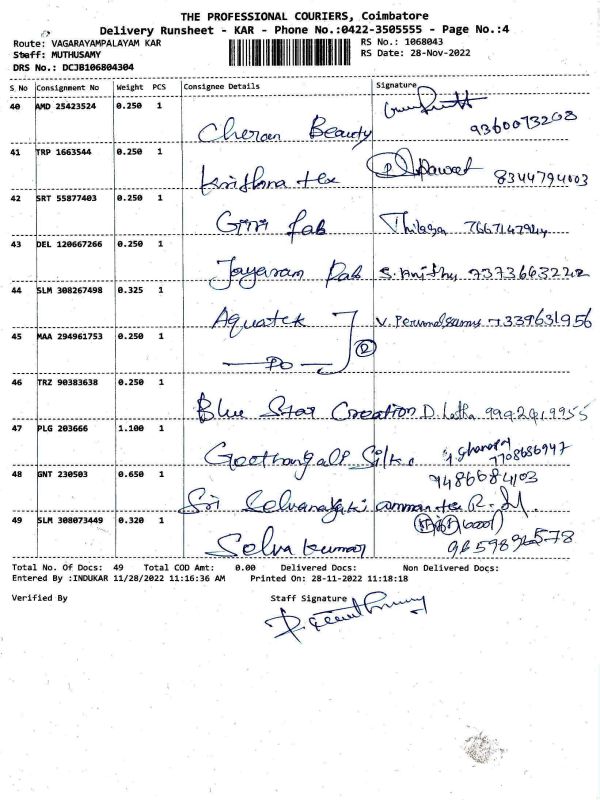 THE PROFESSIONAL COURIERS, Coimbatore
Delivery Runsheet - KAR - Phone No.:0422-3505555 - Page No.:4
Route: VAGARAYAMPALAYAM KAR RS No.: 1068043
Staff: MUTHUSAMY RS Date: 28-Nov-2022
DRS No.: DCJB106804304
S.No Consignment No Weight PCS Consignee Details Signature
40 AMD 25423524 0.250 1
Cheran Beauty 9360073208
41 TRP 1663544 0.250 1
Krishna tex 8344794003
42 SRT 55877403 0.250 1
Giri fab Thilaga
43 DEL 120667266 0.250 1
Jayaram Fab
44 SLM 308267498 0.325 1
Aquatek
45 MAA 294961753 0.250 1
— Do — 2
46 TRZ 90383638 0.250 1
Blue Star Creation D. Latha
47 PLG 203666 1.100 1
Silks 7708686947
48 GNT 230503 0.650 1
9486684103
Sri
49 SLM 308073449 0.320 1
Selvakumar
Total No. Of Docs: 49 Total COD Amt: 0.00 Delivered Docs: Non Delivered Docs:
Entered By :INDUKAR 11/28/2022 11:16:36 AM Printed On: 28-11-2022 11:18:18
Verified By Staff Signature